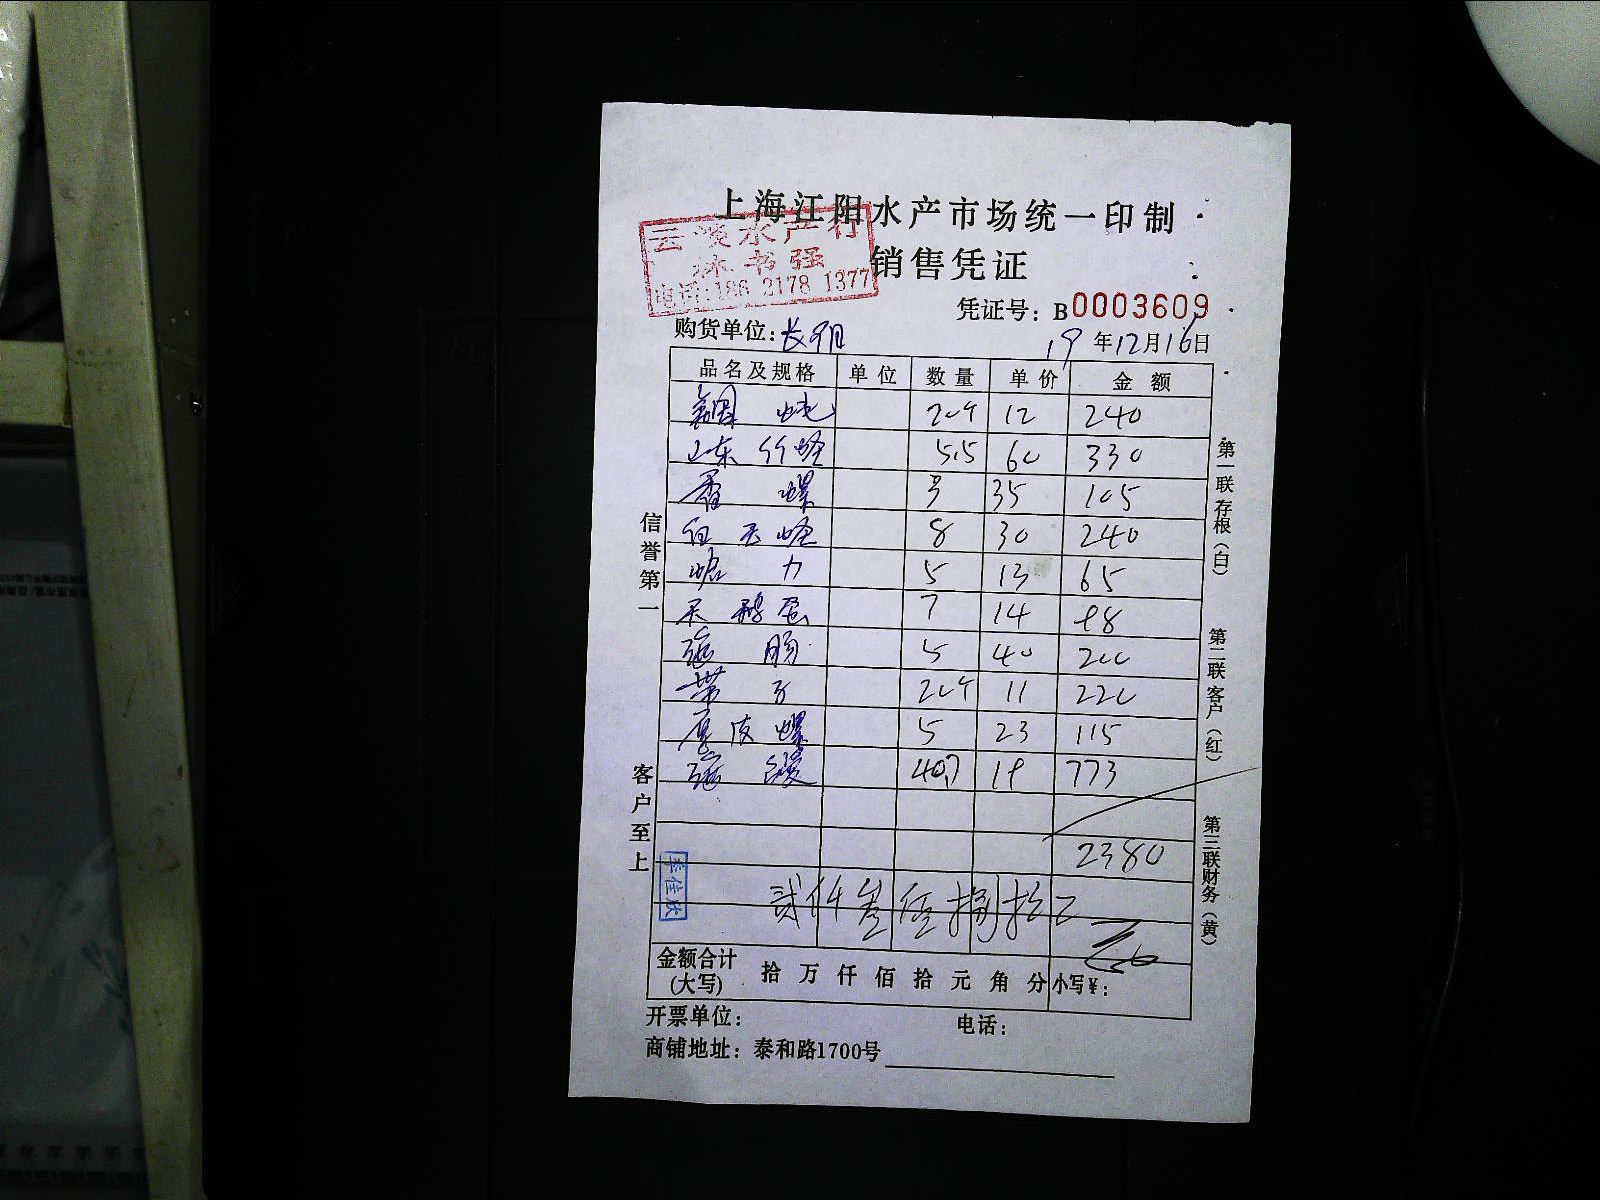 上海江阳水产市场统一印制
云 水产行
林书强
电话:186 2178 1377
销售凭证
凭证号: B0003609
购货单位: 长阳
19 年 12 月 16 日
品名及规格 单位 数量 单价 金额
12 240
山东竹蛏 5.5 60 330
香螺 3 35 105
白玉蛏 8 30 240
5 13 65
天鹅蛋 7 14 98
5 40 200
带子 11 220
皮螺 5 23 115
40.7 19 773
2380
贰仟叁佰捌拾
金额合计(大写) 拾 万 仟 佰 拾 元 角 分 小写¥:
开票单位: 电话:
商铺地址: 泰和路1700号
信誉第一
客户至上
李佳欣
第一联存根(白)
第二联客户(红)
第三联财务(黄)